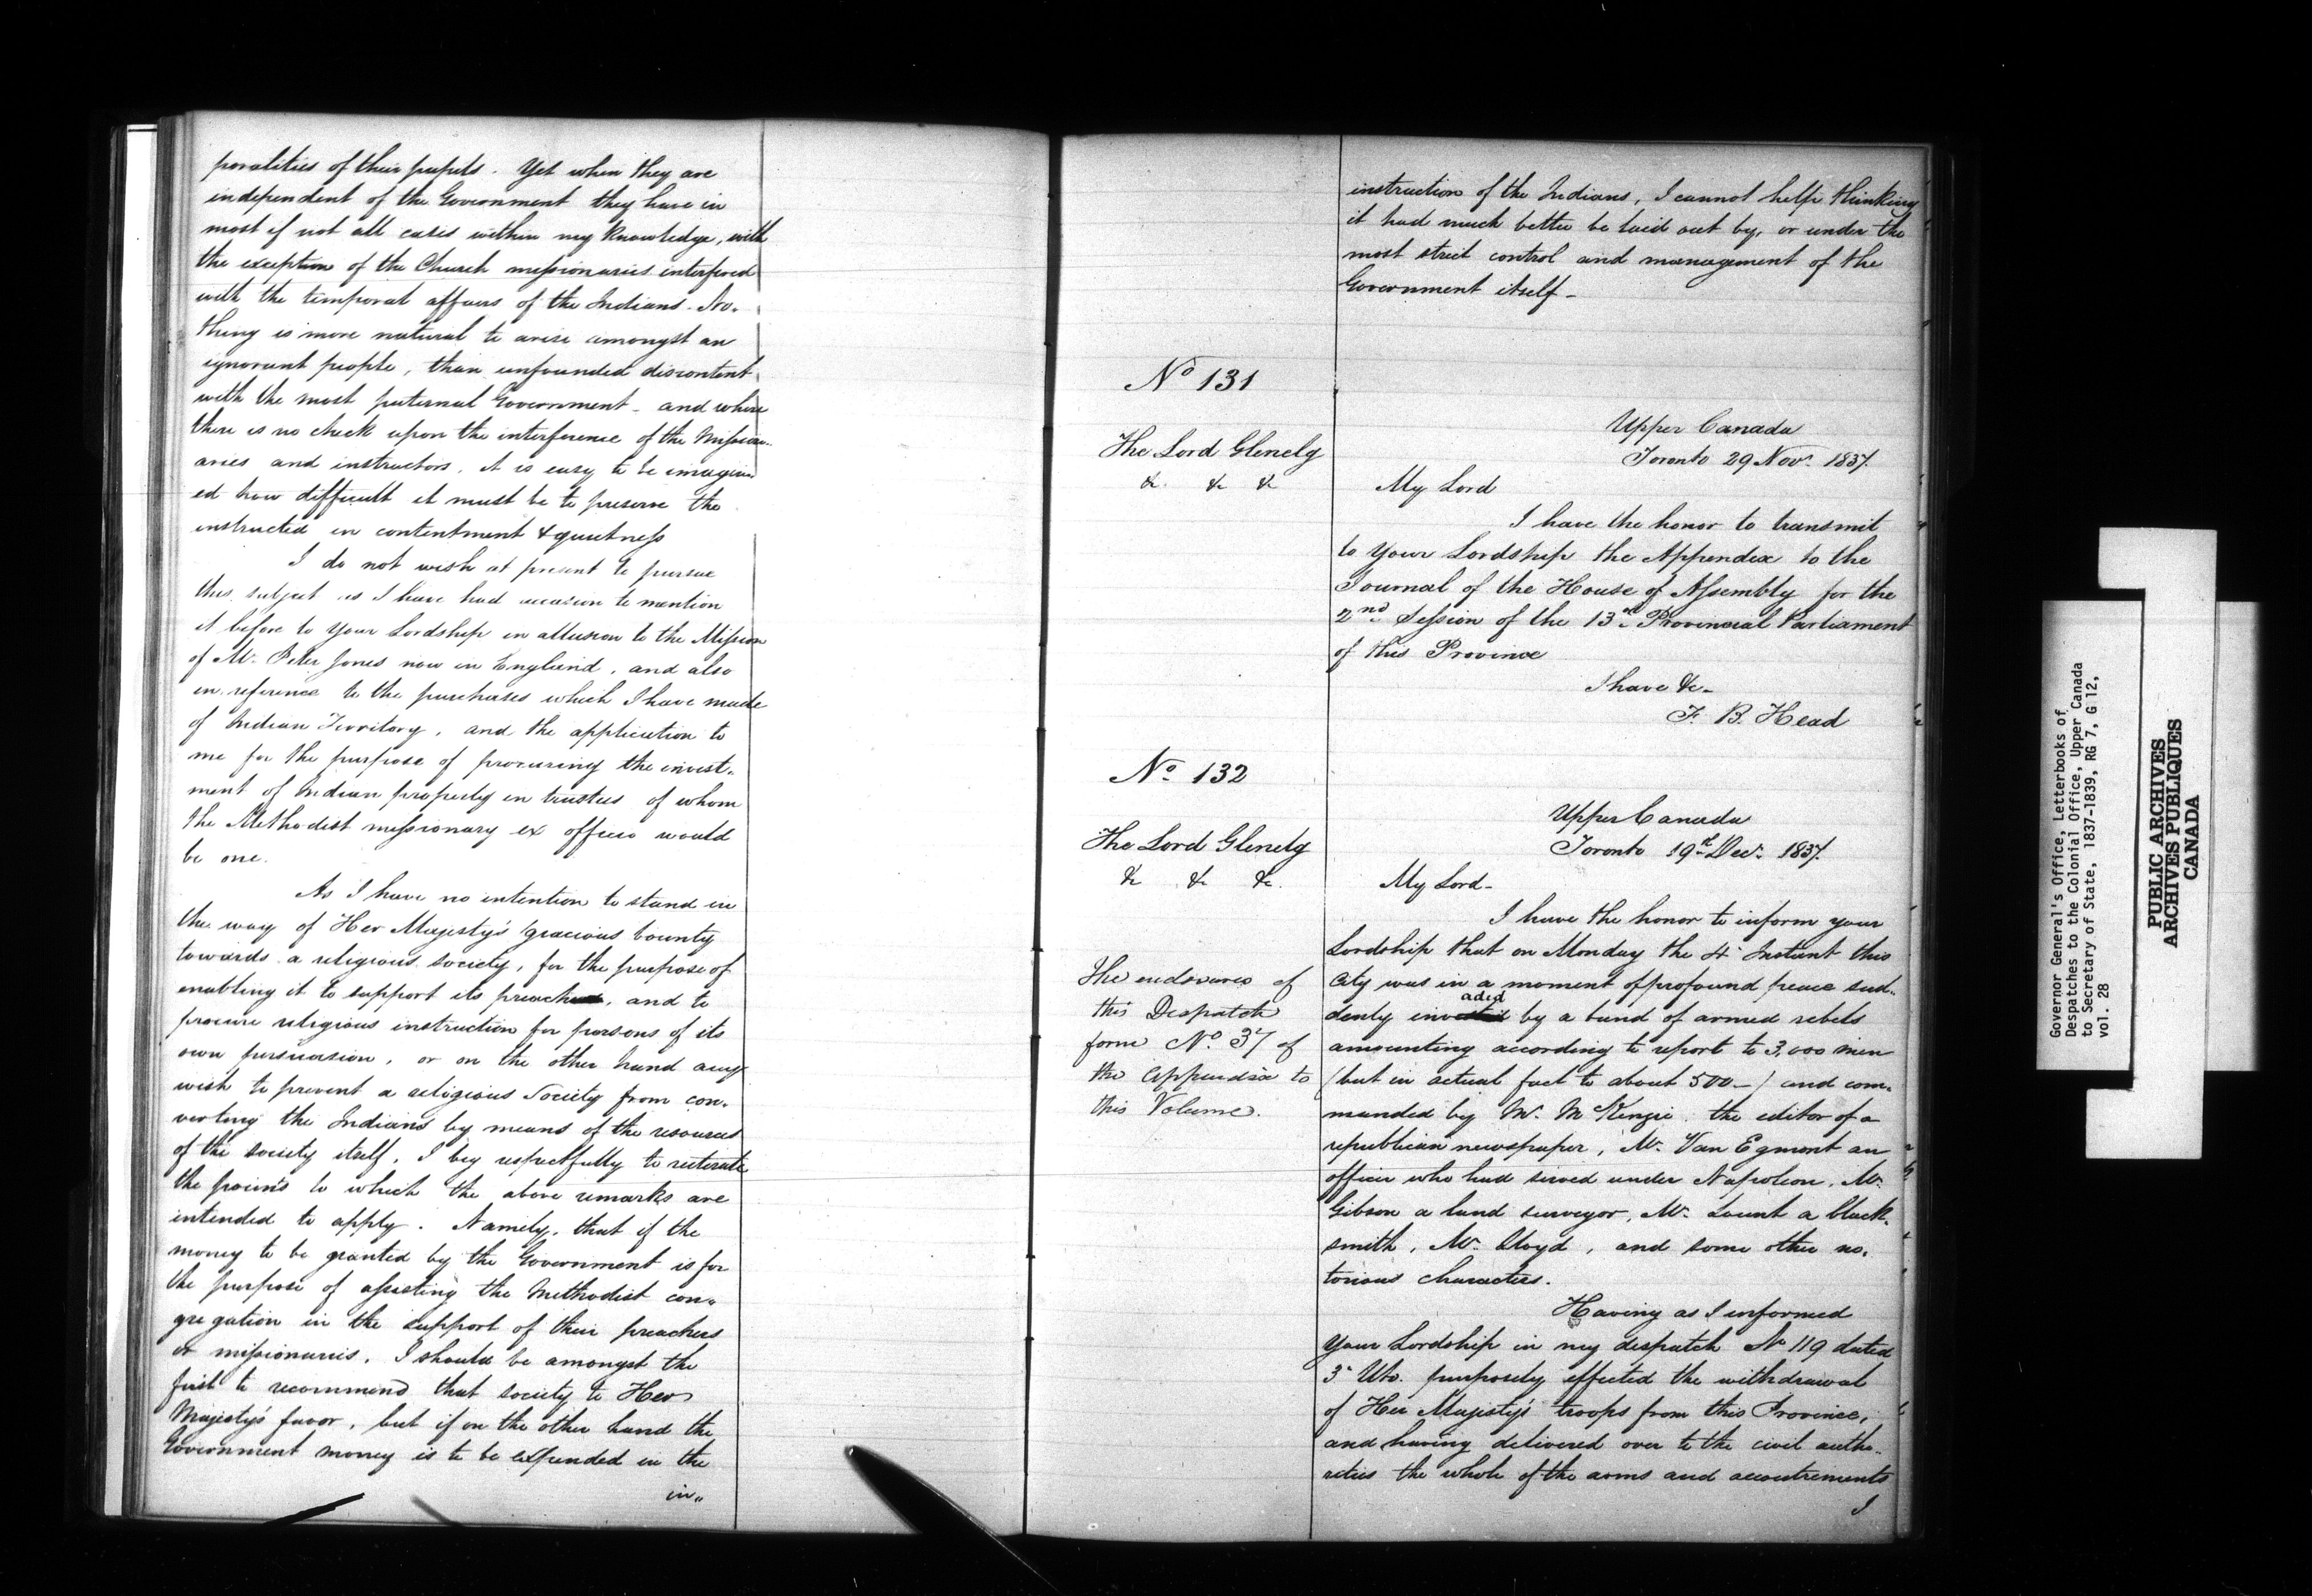 poralities of their pupils. Yet when they are
independent of the Government they have in
most if not all cases within my Knowledge, with
the exception of the Church missionaries interfered
with the temporal affairs of the Indians. No-
thing is more natural to arise amongst an
ignorant people, than unfounded discontent
with the most paternal Government - and where
there is no check upon the interference of the Mission-
aries and instructors, it is easy to be imagin-
ed how difficult it must be to preserve the
instructed in contentment & quietness
I do not wish at present to pursue
this subject as I have had occasion to mention
it before to your Lordship in allusion to the Mission
of Mr. Peter Jones now in England, and also
in reference to the purchases which I have made
of Indian Territory, and the application to
me for the purpose of procuring the invest-
ment of Indian property in trustees of whom
the Methodist missionary ex officio would
be one.
As I have no intention to stand in
the way of Her Majesty's gracious bounty
towards a religious society, for the purpose of
enabling it to support its preachers, and to
procure religious instruction for persons of its
own persuasion, or on the other hand any
wish to prevent a religious Society from con-
verting the Indians by means of the resources
of the society itself, I beg respectfully to reiterate
the points to which the above remarks are
intended to apply. Namely, that if the
money to be granted by the Government is for
the purpose of assisting the Methodist con-
gregation in the support of their preachers
or missionaries, I should be amongst the
first to recommend that society to Her
Majesty's favor, but if on the other hand the
Government money is to be expended in the
in-
instruction of the Indians, I cannot help thinking
it had much better be laid out by, or under the
most strict control and management of the
Government itself -
No 131
Upper Canada
Toronto 29 Nov. 1837.
The Lord Glenelg
&c &c &c
My Lord
I have the honor to transmit
to Your Lordship the Appendix to the
Journal of the House of Assembly for the
2nd Session of the 13th Provincial Parliament
of this Province
I have &c-
F. B. Head
No. 132
Upper Canada
Toronto 19th Decr. 1837.
The Lord Glenelg
&c &c &c.
My Lord-
I have the honor to inform your
Lordship that on Monday the 4th Instant this
The enclosures of
this Despatch
form No. 37 of
the Appendix to
this Volume.
City was in a moment of profound peace sud-
denly invaded by a band of armed rebels
amounting according to report to 3,000 men
(but in actual fact to about 500-) and com-
manded by Mr. McKenzie the editor of a
republican newspaper, Mr. Van Egmont an
officer who had served under Napoleon, Mr.
Gibson a land surveyor, Mr. Lount a black-
smith, Mr. Lloyd, and some other no-
torious characters.
Having as I informed
your Lordship in my despatch No 119 dated
3d Ulto. purposely effected the withdrawal
of Her Majesty's troops from this Province,
and having delivered over to the civil autho-
rities the whole of the arms and accoutrements
I
Governor General's Office, Letterbooks of
Despatches to the Colonial Office, Upper Canada
to Secretary of State, 1837-1839, RG 7, G 12,
vol. 28
PUBLIC ARCHIVES
ARCHIVES PUBLIQUES
CANADA